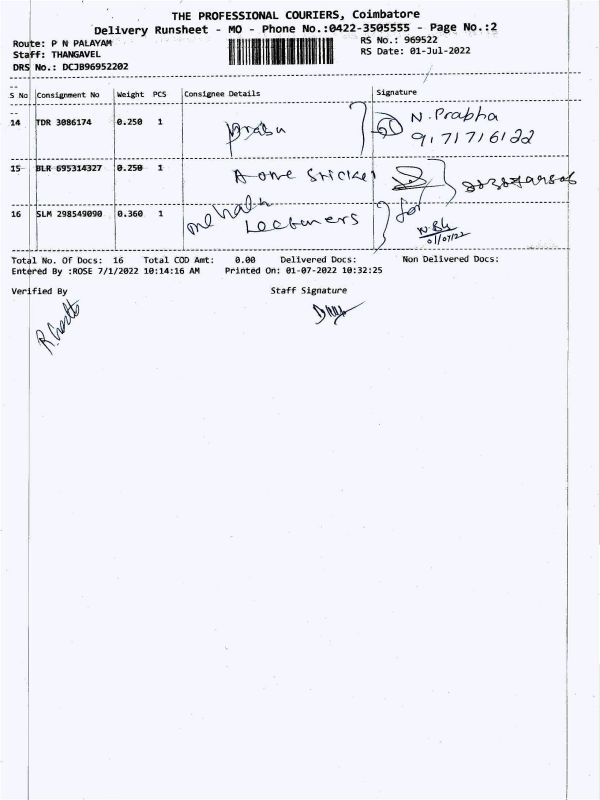 THE PROFESSIONAL COURIERS, Coimbatore
Delivery Runsheet - MO - Phone No.:0422-3505555 - Page No.:2
Route: P N PALAYAM
RS No.: 969522
Staff: THANGAVEL
RS Date: 01-Jul-2022
DRS No.: DCJB96952202
S No Consignment No Weight PCS Consignee Details Signature
14 TDR 3086174 0.250 1 Prabu N. Prabha
9171716122
15 BLR 695314327 0.250 1 A one Sticker
16 SLM 298549090 0.360 1 for
01/07/22
Total No. Of Docs: 16 Total COD Amt: 0.00 Delivered Docs: Non Delivered Docs:
Entered By :ROSE 7/1/2022 10:14:16 AM Printed On: 01-07-2022 10:32:25
Verified By Staff Signature